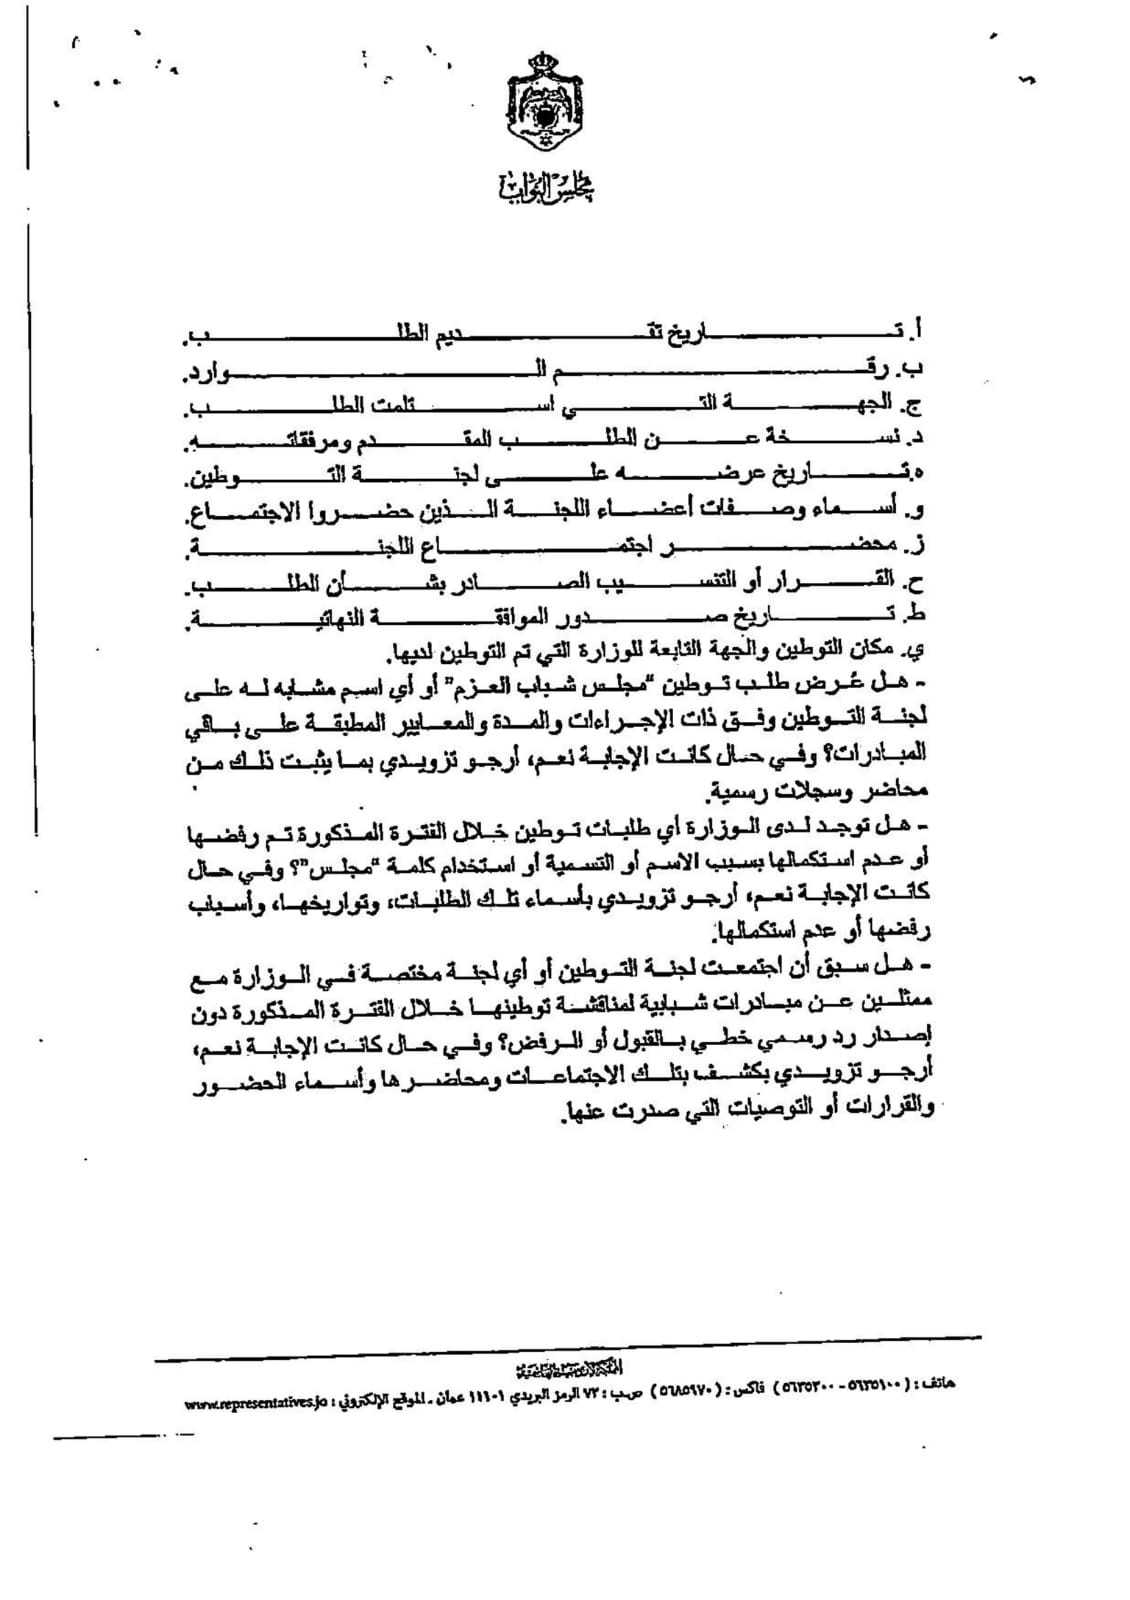 مجلس النواب
أ. تاريخ تقديم الطلب.
ب. رقم الوارد.
ج. الجهة التي استلمت الطلب.
د. نسخة عن الطلب المقدم ومرفقاته.
ه. تاريخ عرضه على لجنة التوطين.
و. أسماء وصفات أعضاء اللجنة الذين حضروا الاجتماع.
ز. محضر اجتماع اللجنة.
ح. القرار أو التنسيب الصادر بشأن الطلب.
ط. تاريخ صدور الموافقة النهائية.
ي. مكان التوطين والجهة التابعة للوزارة التي تم التوطين لديها.
- هل عُرض طلب توطين "مجلس شباب العزم" أو أي اسم مشابه له على
لجنة التوطين وفق ذات الإجراءات والمدة والمعايير المطبقة على باقي
المبادرات؟ وفي حال كانت الإجابة نعم، أرجو تزويدي بما يثبت ذلك من
محاضر وسجلات رسمية.
- هل توجد لدى الوزارة أي طلبات توطين خلال الفترة المذكورة تم رفضها
أو عدم استكمالها بسبب الاسم أو التسمية أو استخدام كلمة "مجلس"؟ وفي حال
كانت الإجابة نعم، أرجو تزويدي بأسماء تلك الطلبات، وتواريخها، وأسباب
رفضها أو عدم استكمالها.
- هل سبق أن اجتمعت لجنة التوطين أو أي لجنة مختصة في الوزارة مع
ممثلين عن مبادرات شبابية لمناقشة توطينها خلال الفترة المذكورة دون
إصدار رد رسمي خطي بالقبول أو الرفض؟ وفي حال كانت الإجابة نعم،
أرجو تزويدي بكشف بتلك الاجتماعات ومحاضرها وأسماء الحضور
والقرارات أو التوصيات التي صدرت عنها.
المملكة الأردنية الهاشمية
هاتف : (٥٦٣٥١٠٠ - ٥٦٣٥٢٠٠) فاكس : (٥٦٨٥٩٧٠) ص.ب : ٧٢ الرمز البريدي ١١١٠١ عمان . الموقع الإلكتروني : www.representatives.jo